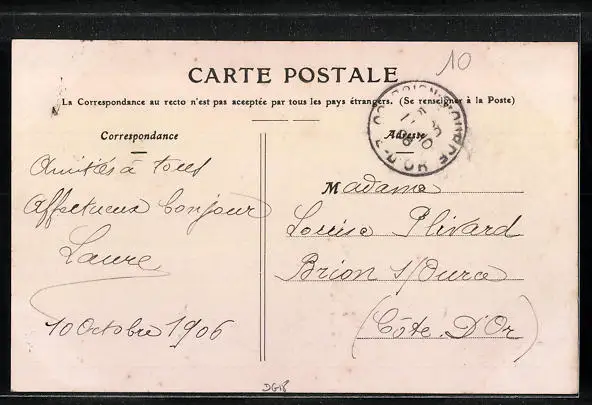 10
CARTE POSTALE
La Correspondance au recto n'est pas acceptée par tous les pays étrangers. (Se renseigner à la Poste)
Correspondance
Adresse
Amitiés à tous
Affectueux bonjour
Laure
10 Octobre 1906
Madame
Louisa Plivard
Brion s/Ource
(Côte-D'Or)
DG18